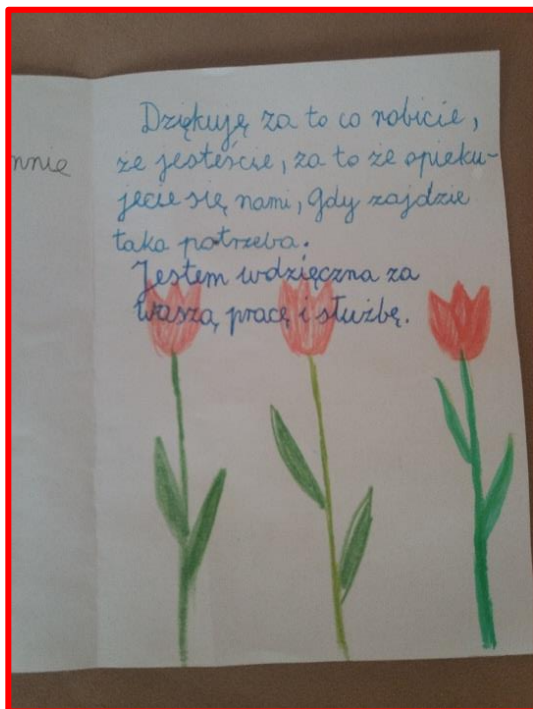 nnie
Dziękuję za to co robicie,
że jesteście, za to że opieku-
jecie się nami, gdy zajdzie
taka potrzeba.
Jestem wdzięczna za
Waszą pracę i służbę.